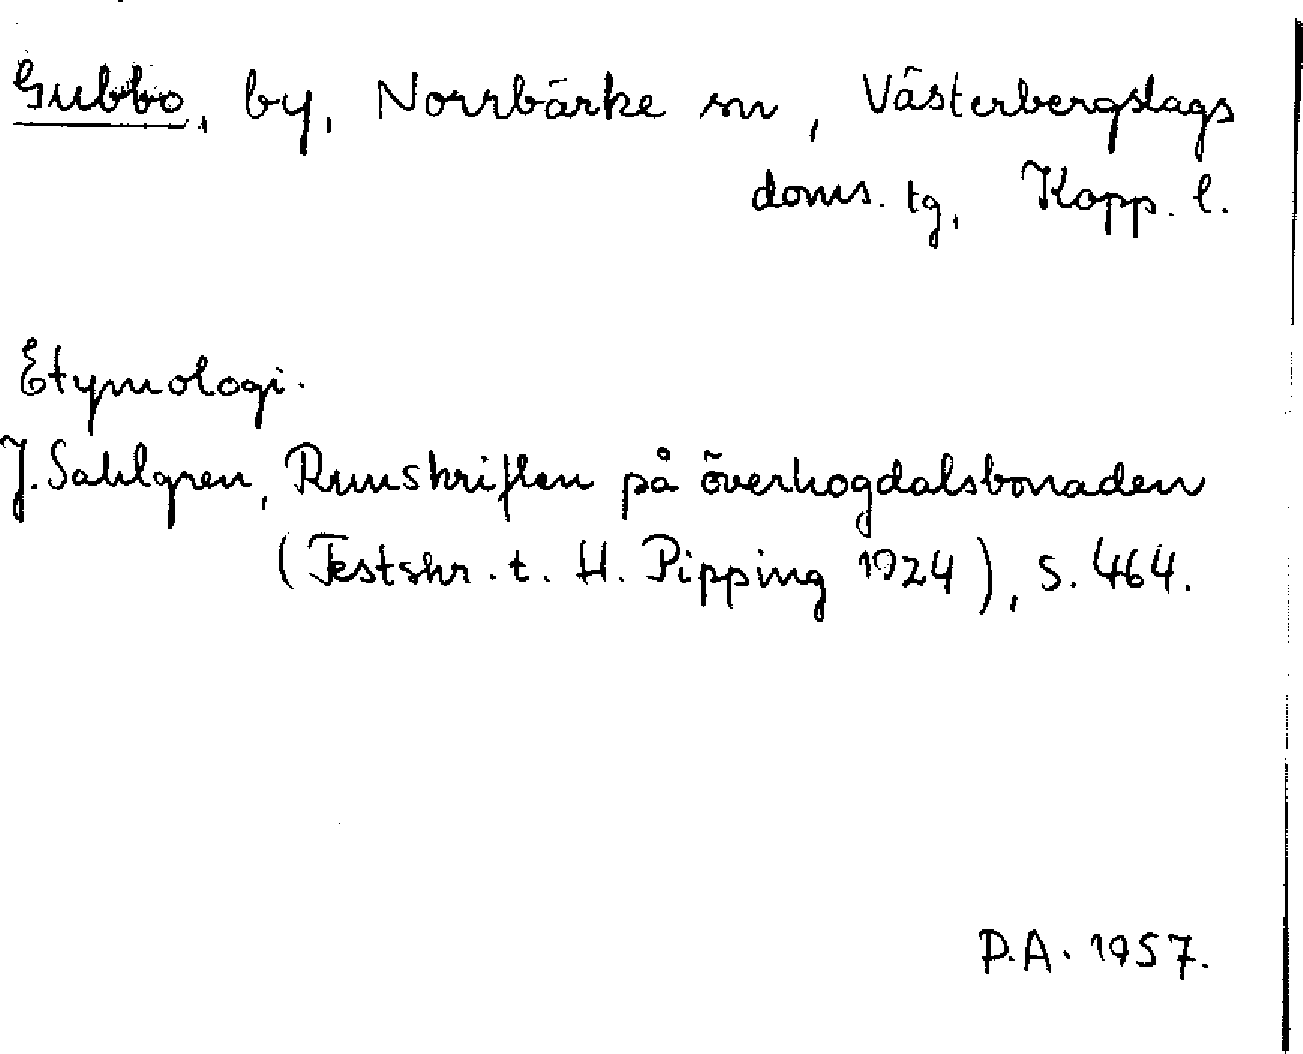 Gubbo, by, Norrbärke sn, Västerbergslags
doms. tg, Kopp. l.
Etymologi.
J. Sahlgren, Runskriften på överhogdalsbonaden
(Festskr. t. H. Pipping 1924), s. 464.
P.A. 1957.